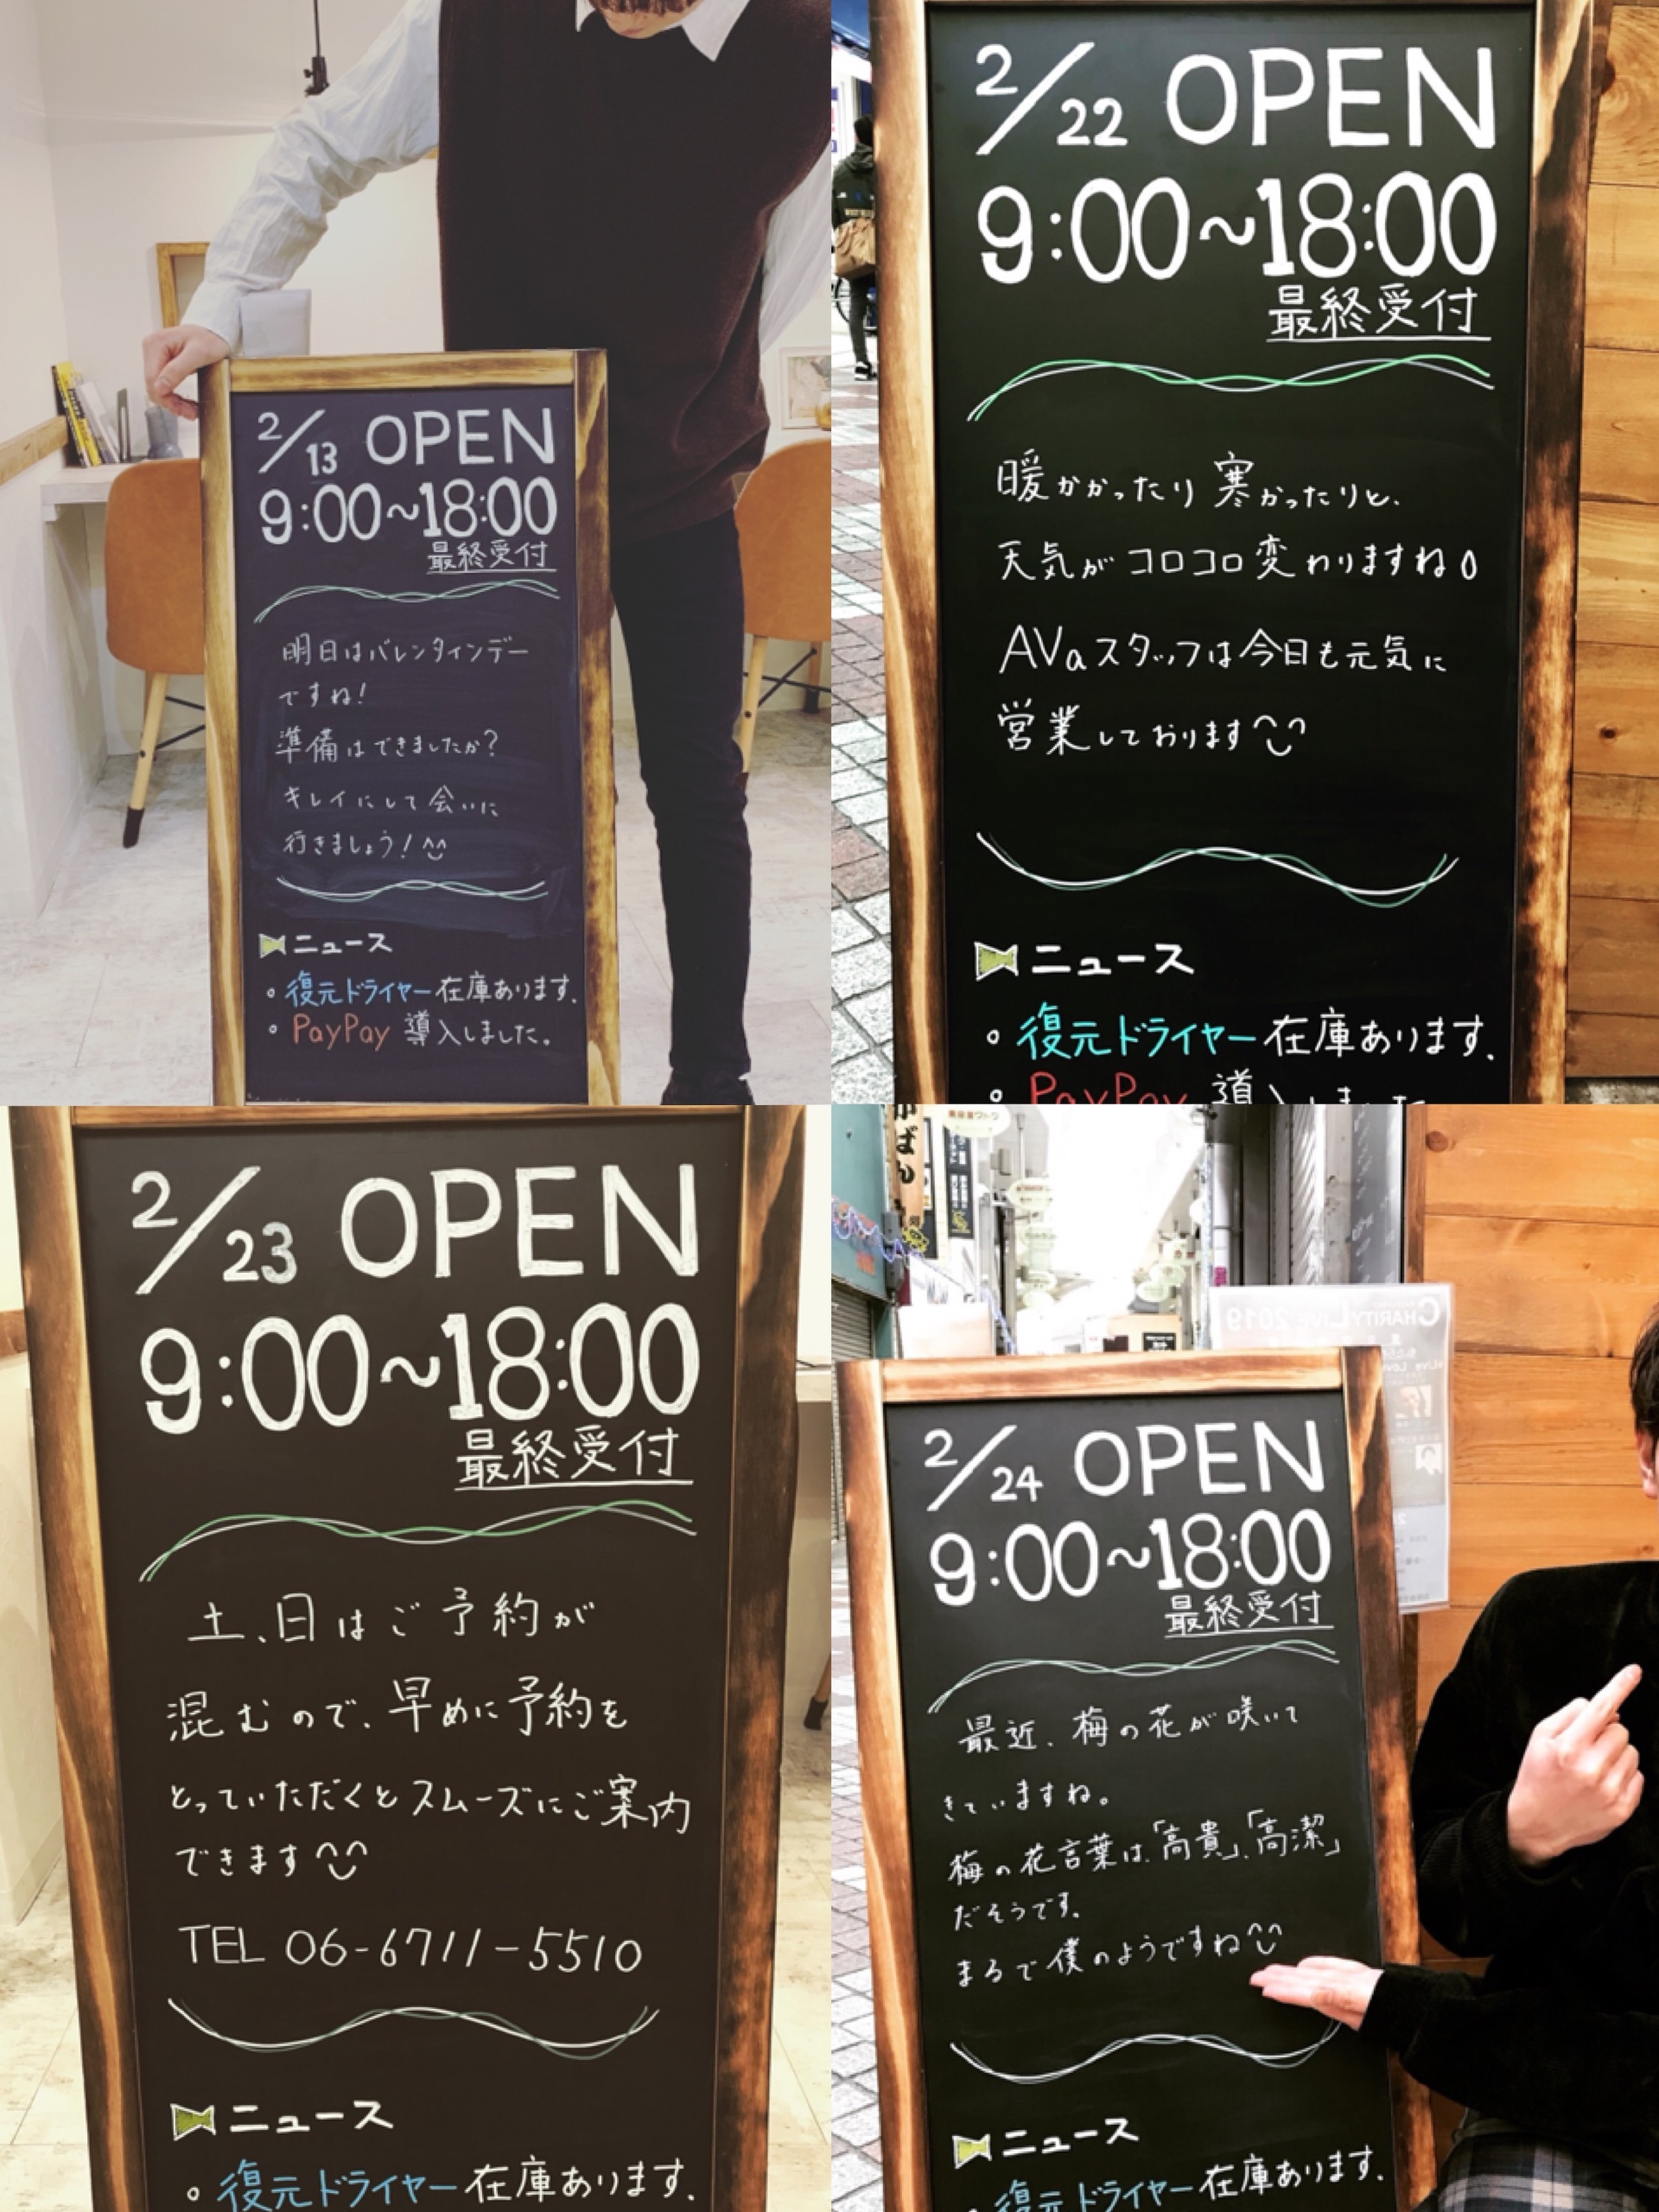 2/13 OPEN
9:00~18:00
最終受付
明日はバレンタインデー
ですね!
準備はできましたか?
キレイにして会いに
行きましょう!^^
ニュース
・復元ドライヤー在庫あります。
・PayPay 導入しました。
2/22 OPEN
9:00~18:00
最終受付
暖かかったり寒かったりと、
天気がコロコロ変わりますね。
AVaスタッフは今日も元気に
営業しております
ニュース
・復元ドライヤー在庫あります。
・PayPay 導入しました
2/23 OPEN
9:00~18:00
最終受付
土、日はご予約が
混むので、早めに予約を
とっていただくとスムーズにご案内
できます
TEL 06-6711-5510
ニュース
・復元ドライヤー在庫あります。
かばん
CHARITY LIVE 2019
2/24 OPEN
9:00~18:00
最終受付
最近、梅の花が咲いて
きていますね。
梅の花言葉は、「高貴」、「高潔」
だそうです。
まるで僕のようですね
ニュース
・復元ドライヤー在庫あります。